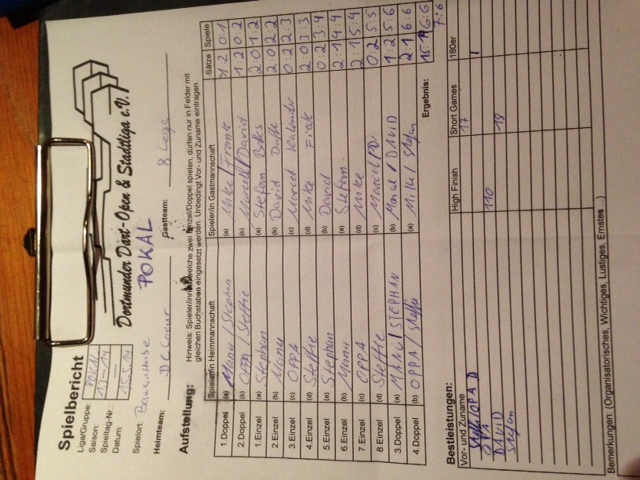 Spielbericht
Liga/Gruppe: POKAL
Saison: 13-14
Spieltag-Nr.: —
Datum: 15.5.14
Dortmunder Dart-Open & Stadtliga e.V.
POKAL
Spielort:
Heimteam: DC Coeur
Gastteam: 8 Legs
Aufstellung:
Hinweis: Spieler/innen, welche zwei Einzel/Doppel spielen, dürfen nur in Felder mit
gleichen Buchstaben eingesetzt werden. Unbedingt Vor- und Zuname eintragen
Spieler/in Heimmannschaft Spieler/in Gastmannschaft Sätze Spiele
1.Doppel (a) Manu/Stephan (a) Mike/Frank 1 2 0 1
2.Doppel (b) OPPA/Steffie (b) Marcel/David 1 2 0 2
1.Einzel (a) Stephan (a) Stefan 2 0 1 2
2.Einzel (b) Manu (b) David 2 0 2 2
3.Einzel (c) OPPA (c) Marcel 0 2 2 3
4.Einzel (d) Steffie (d) Mike 2 0 3 3
5.Einzel (a) Stephan (b) David 0 2 3 4
6.Einzel (b) Manu (a) Stefan 2 1 4 4
7.Einzel (c) OPPA (d) Mike 2 1 5 4
8.Einzel (d) Steffie (c) Marcel 0 2 5 5
3.Doppel (a) MANU/STEPHAN (b) Marcel/DAVID 1 2 5 6
4.Doppel (b) OPPA/Steffie (a) Mike/Stefan 2 1 6 6
Ergebnis: 6:6
7:6
Bestleistungen:
Vor- und Zuname High Finish Short Games 180er
17 1
OPA 110
DAVID 18
Stefan
Bemerkungen: (Organisatorisches, Wichtiges, Lustiges, Ernstes...)